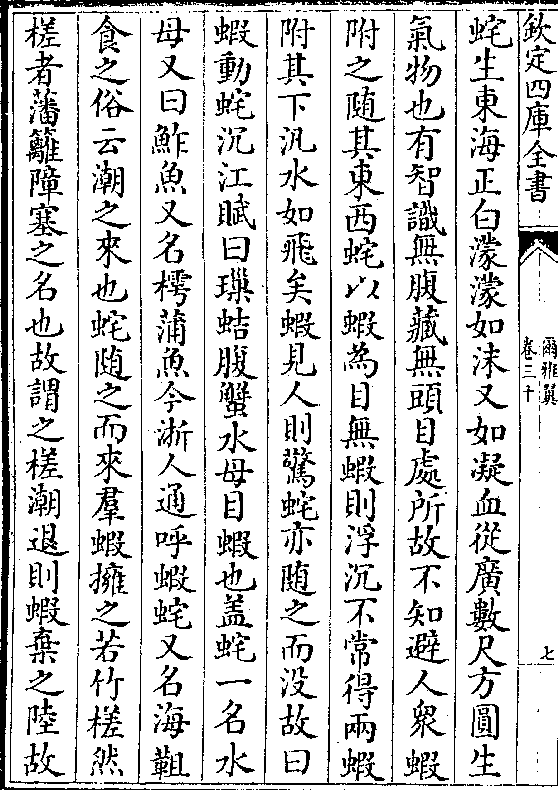 欽定四庫全書
爾雅翼
卷三十
七
蛇生東海正白濛濛如沫又如凝血從廣數尺方圓生
氣物也有智識無腹藏無頭目處所故不知避人衆蝦
附之随其東西蛇以蝦為目無蝦則浮沉不常得兩蝦
附其下汎水如飛矣蝦見人則驚蛇亦随之而没故曰
蝦動蛇沉江賦曰璅蛣腹蟹水母目蝦也盖蛇一名水
母又曰鮓魚又名樗蒲魚今浙人通呼蝦蛇又名海䩆
食之俗云潮之來也蛇随之而來羣蝦擁之若竹槎然
槎者藩籬障塞之名也故謂之槎潮退則蝦棄之陸故